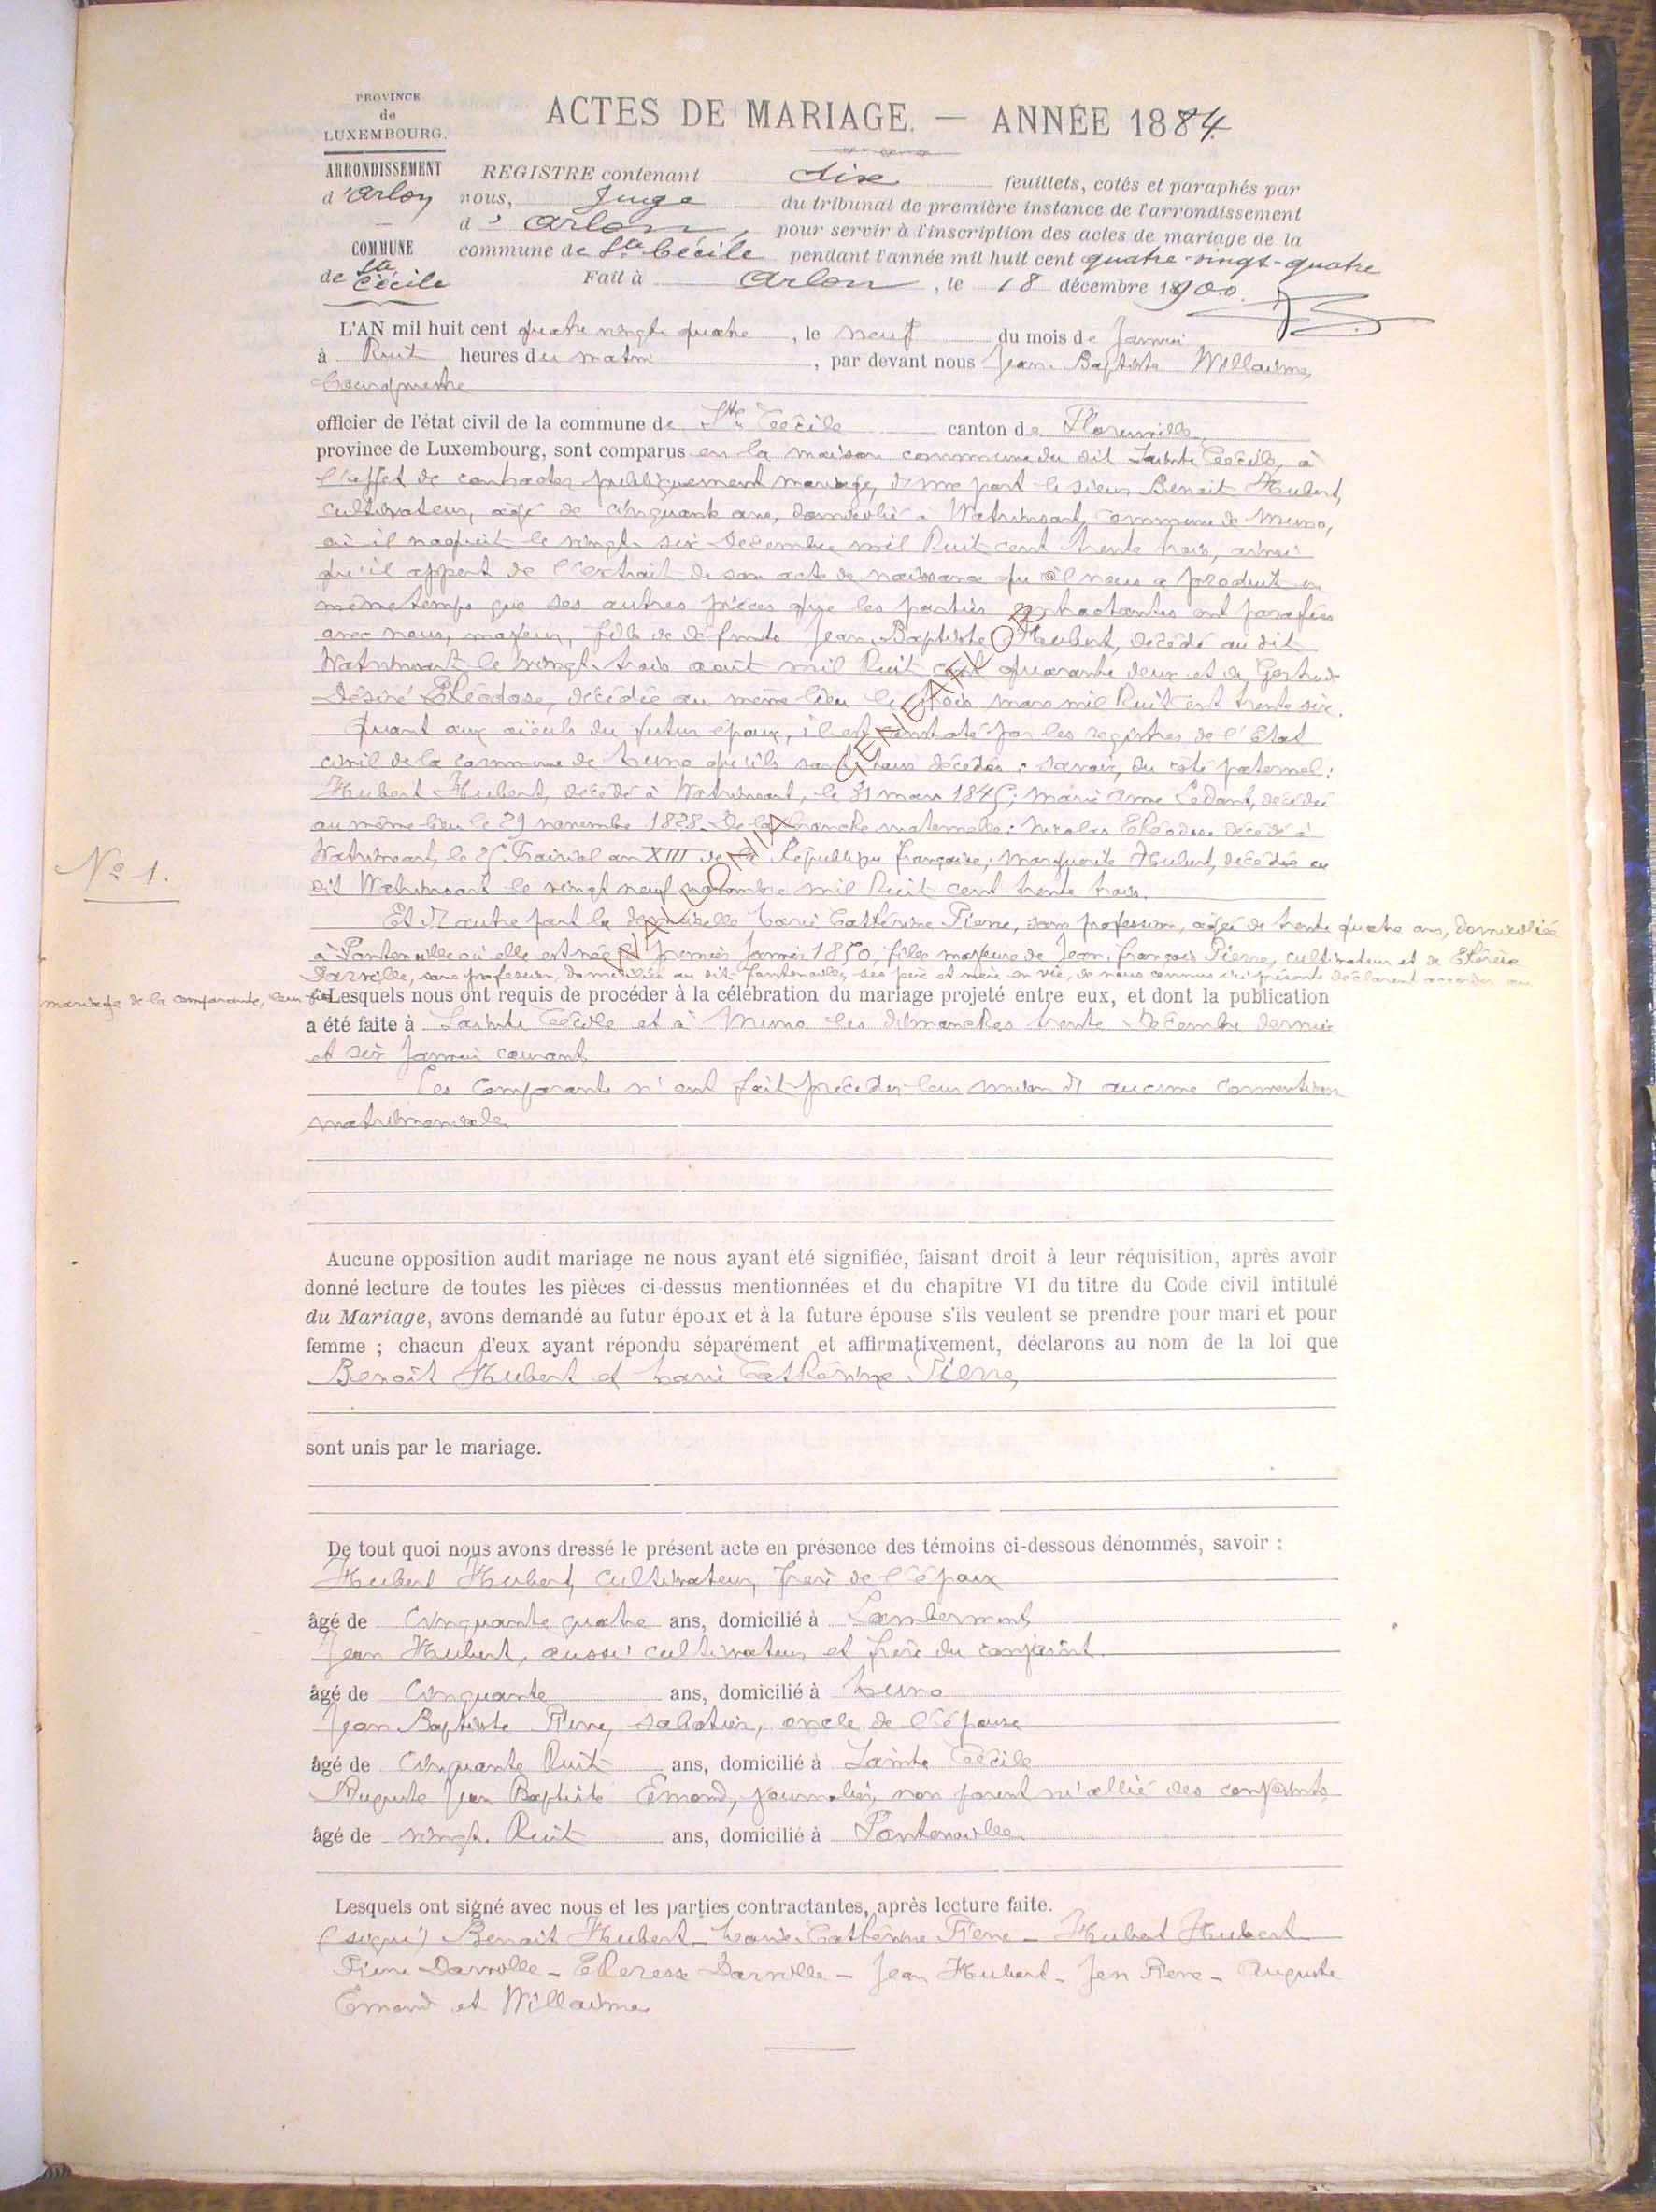 PROVINCE
de
LUXEMBOURG.
ACTES DE MARIAGE. — ANNÉE 1884.
ARRONDISSEMENT
d'Arlon
COMMUNE
de Ste
Cécile
REGISTRE contenant dix feuillets, cotés et paraphés par
nous, Juge du tribunal de première instance de l'arrondissement
d'Arlon, pour servir à l'inscription des actes de mariage de la
commune de Ste Cécile pendant l'année mil huit cent quatre-vingt-quatre
Fait à Arlon, le 18 décembre 1900.
L'AN mil huit cent quatre vingt quatre, le neuf du mois de Janvier
à huit heures du matin, par devant nous Jean-Baptiste Willaime,
bourgmestre
officier de l'état civil de la commune de Ste Cécile canton de Florenville
province de Luxembourg, sont comparus en la maison commune du dit Sainte Cécile, à
l'effet de contracter publiquement mariage, d'une part le sieur Benoit Hubert,
cultivateur, âgé de cinquante ans, domicilié à Watrinsart, commune de Muno,
où il naquit le vingt-six décembre mil huit cent trente trois, ainsi
qu'il appert de l'extrait de son acte de naissance qu'il nous a produit en
même temps que ses autres pièces que les parties contractantes ont parafées
avec nous, majeur, fils de défunts Jean-Baptiste Hubert, décédé au dit
Watrinsart le vingt-trois août mil huit cent quarante deux et de Gertrude
Désiré Théodose, décédée au même lieu le trois mars mil huit cent trente six.
Quant aux aïeuls du futur époux, il est constaté par les registres de l'Etat
civil de la commune de Muno qu'ils sont tous décédés : savoir, du côté paternel :
Hubert Hubert, décédé à Watrinsart, le 31 mars 1845; Marie Anne Ledant, décédée
au même lieu le 29 novembre 1828. De la branche maternelle : Nicolas Théodose décédé à
Watrinsart, le 25 Prairial an XIII de la République française; Marguerite Hubert, décédée au
dit Watrinsart le vingt neuf novembre mil huit cent trente trois.
No 1.
Et d'autre part la demoiselle Marie Cathérine Pierre, sans profession, âgée de trente quatre ans, domiciliée
à Fontenoille où elle est née le premier janvier 1850, fille majeure de Jean-François Pierre, cultivateur et de Thérèse
Darville, sans profession, domiciliés au dit Fontenoille, ses père et mère en vie, de nous connus ici présents déclarent accorder au
mariage de la comparante, leur fille
Lesquels nous ont requis de procéder à la célébration du mariage projeté entre eux, et dont la publication
a été faite à Sainte Cécile et à Muno les dimanches trente décembre dernier
et six janvier courant.
Les comparants n'ont fait précéder leur union d'aucune convention
matrimoniale.
Aucune opposition audit mariage ne nous ayant été signifiée, faisant droit à leur réquisition, après avoir
donné lecture de toutes les pièces ci-dessus mentionnées et du chapitre VI du titre du Code civil intitulé
du Mariage, avons demandé au futur époux et à la future épouse s'ils veulent se prendre pour mari et pour
femme ; chacun d'eux ayant répondu séparément et affirmativement, déclarons au nom de la loi que
Benoît Hubert et Marie Cathérine Pierre,
sont unis par le mariage.
De tout quoi nous avons dressé le présent acte en présence des témoins ci-dessous dénommés, savoir :
Hubert Hubert, cultivateur, frère de l'époux
âgé de cinquante quatre ans, domicilié à Lambermont
Jean Hubert, aussi cultivateur et frère du conjoint.
âgé de cinquante ans, domicilié à Muno
Jean Baptiste Pierre, sabotier, oncle de l'épouse
âgé de cinquante huit ans, domicilié à Sainte Cécile
Auguste Jean Baptiste Emond, journalier, non parent ni allié des conjoints
âgé de vingt-huit ans, domicilié à Fontenoille.
Lesquels ont signé avec nous et les parties contractantes, après lecture faite.
(signé) Benoit Hubert – Marie-Cathérine Pierre – Hubert Hubert
Pierre Darville – Theresse Darville – Jean Hubert – Jen Pierre – Auguste
Emond et Willaime
WALLONIA GENEAFLOR